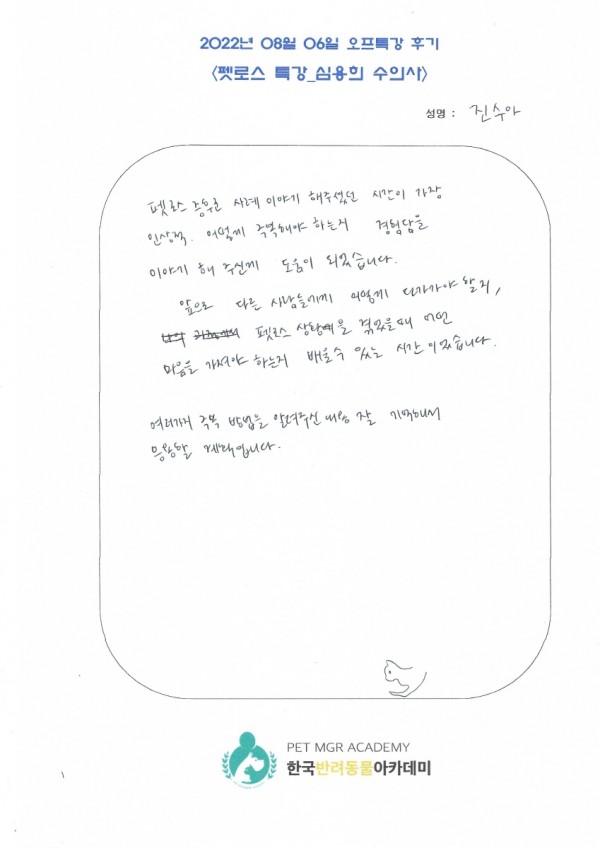 2022년 08월 06일 오프특강 후기
<펫로스 특강_심용희 수의사>
성명 : 진수아
펫로스 증후군 사례 이야기 해주셨던 시간이 가장
인상적. 어떻게 극복해야 하는지 경험담을
이야기 해 주신게 도움이 되었습니다.
앞으로 다른 사람들에게 어떻게 다가가야 할지,
펫로스 상황을 겪었을때 어떤
마음을 가져야 하는지 배울수 있는 시간이었습니다.
여러가지 극복 방법을 알려주신 내용 잘 기억해서
응용할 계획입니다.
PET MGR ACADEMY
한국반려동물아카데미